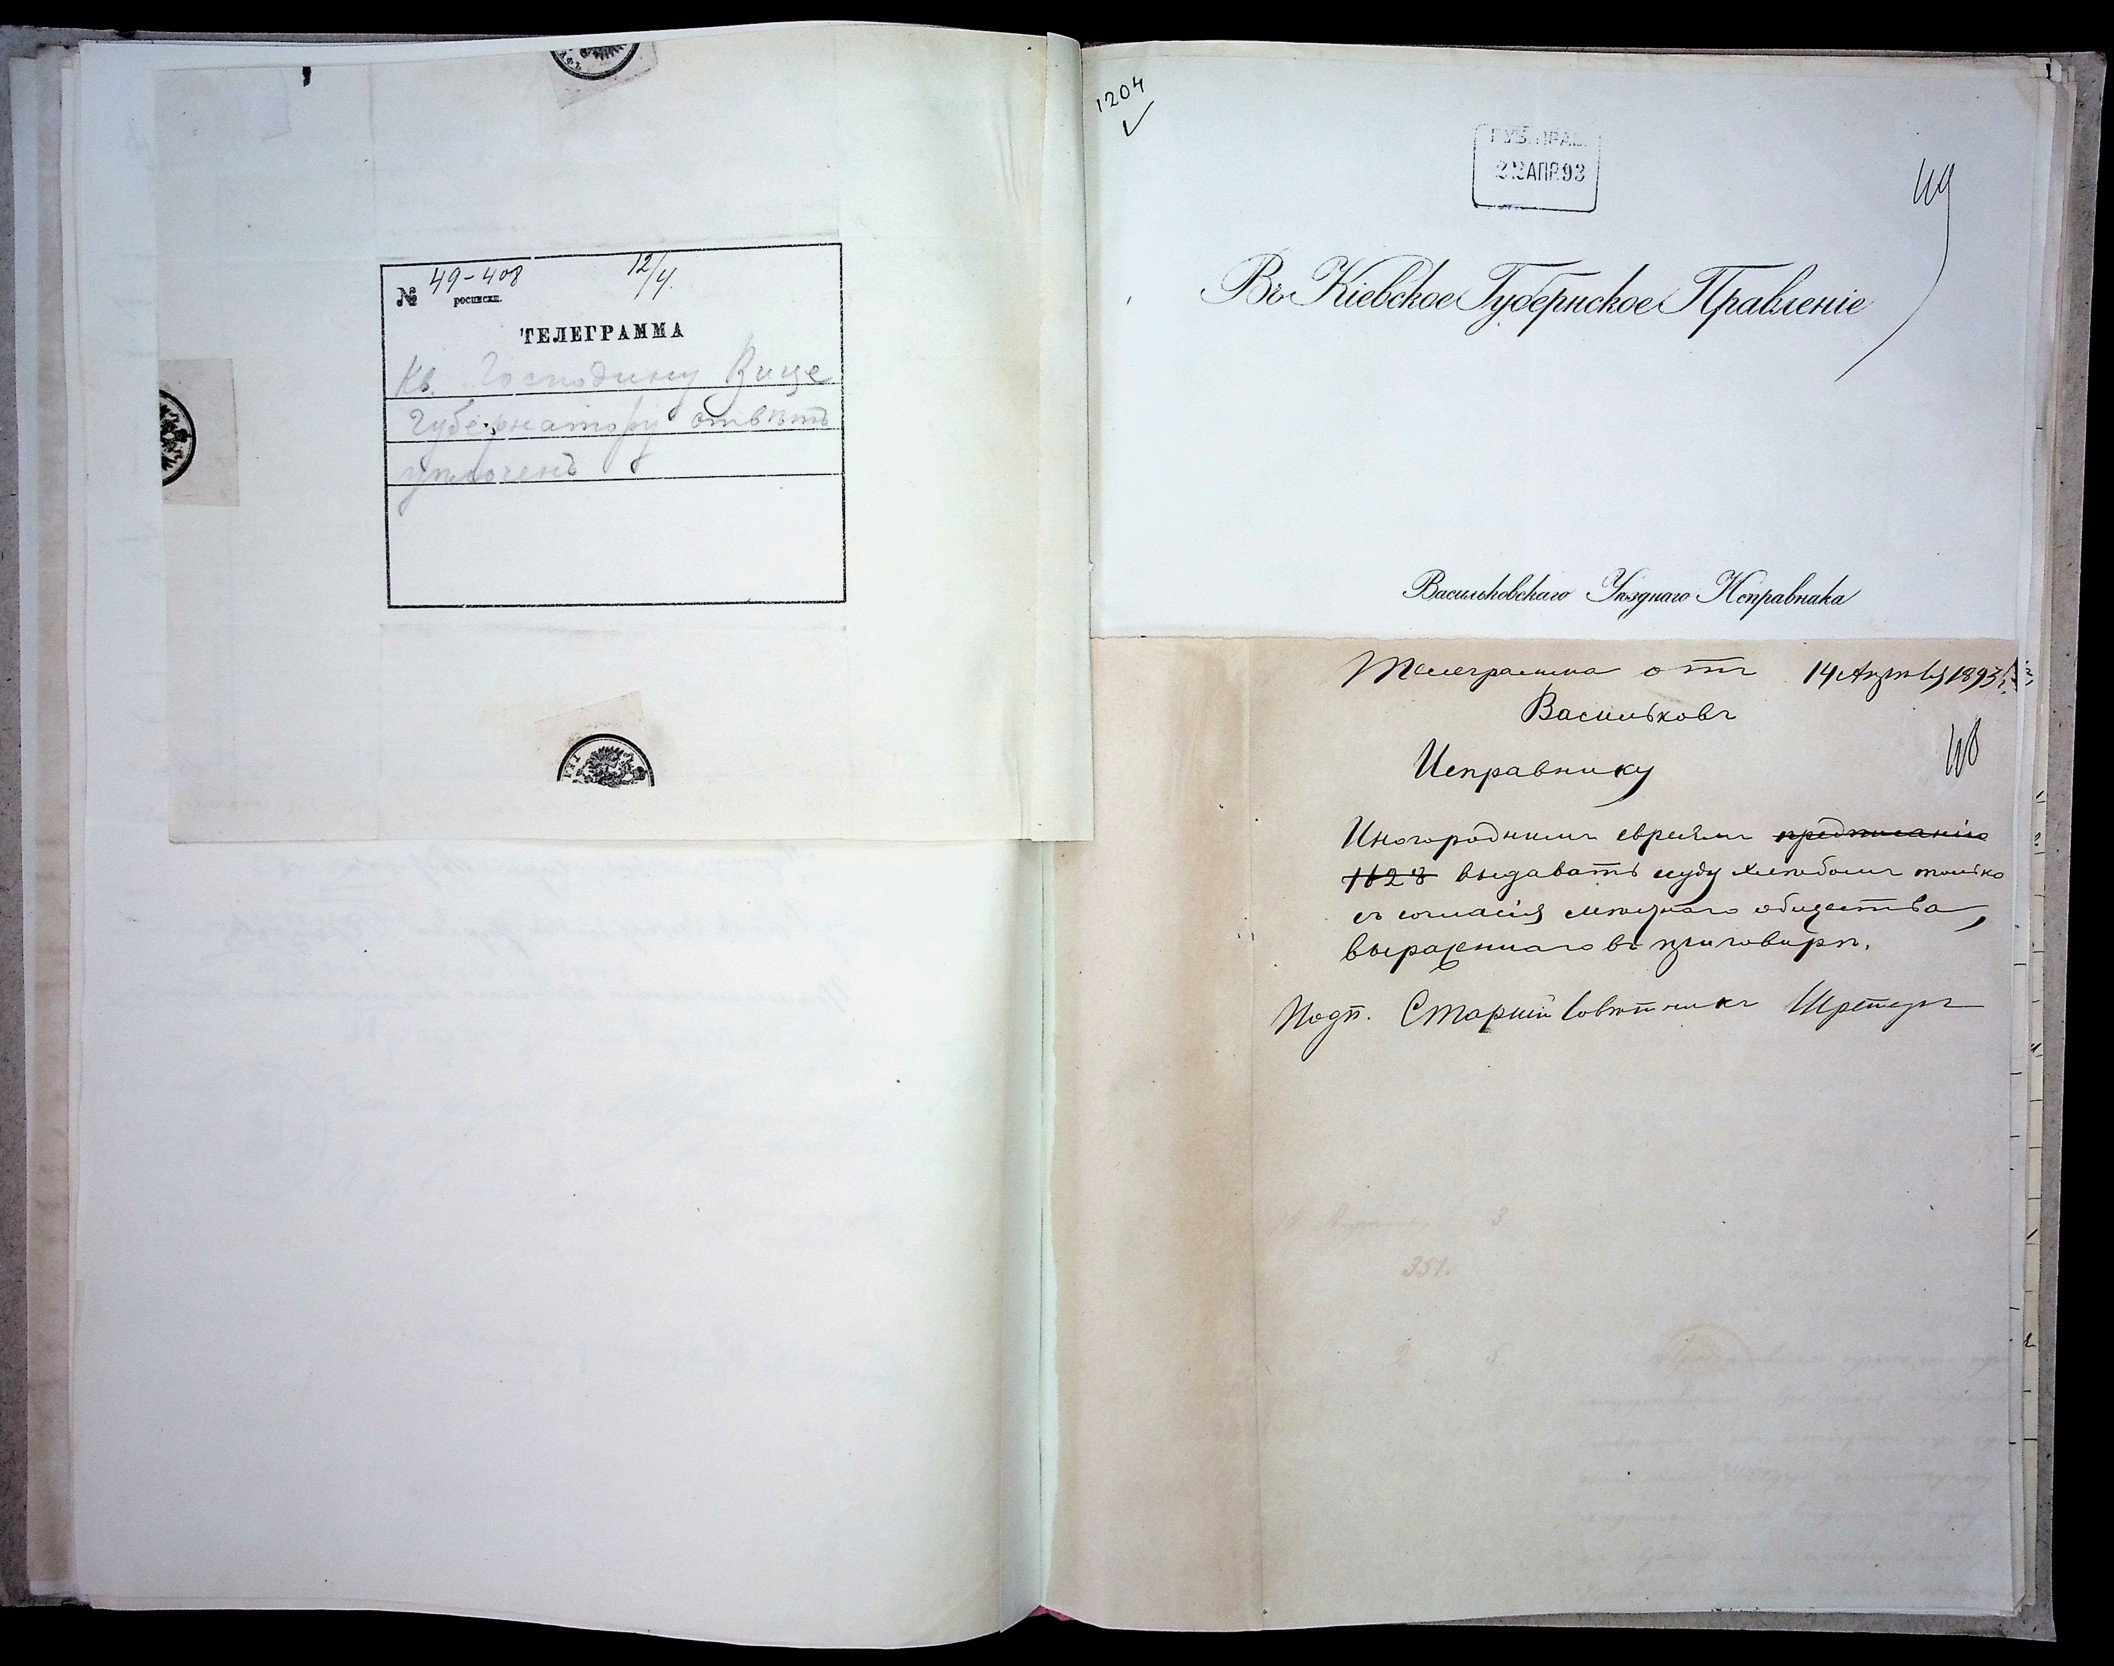 № 49-408 12/4.
росписки.
ТЕЛЕГРАММА
Кв. Господину Вице
Губернатору отвѣтъ
уплоченъ
1204
ГУБ. ПРАВ.
АПР. 93
119
Въ Кіевское Губернское Правленіе
Васильковскаго Уѣзднаго Исправника
Телеграмма отъ 14 Апрѣля 1893 г.
Васильковъ
118
Исправнику
Иногороднимъ евреямъ предписанію
1628 выдавать ссуду хлѣбомъ только
съ согласія мѣстнаго общества,
выраженнаго въ приговорѣ.
Подп. Старшій Совѣтникъ
351.